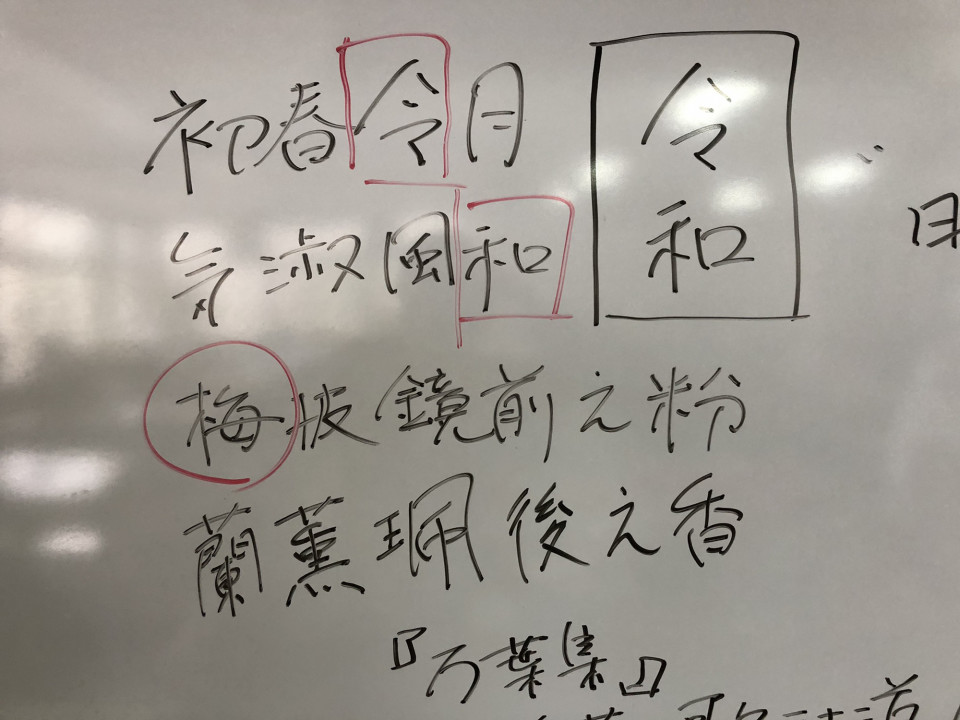 初春令月
気淑風和
梅披鏡前之粉
蘭薫珮後之香
『万葉集』
令和